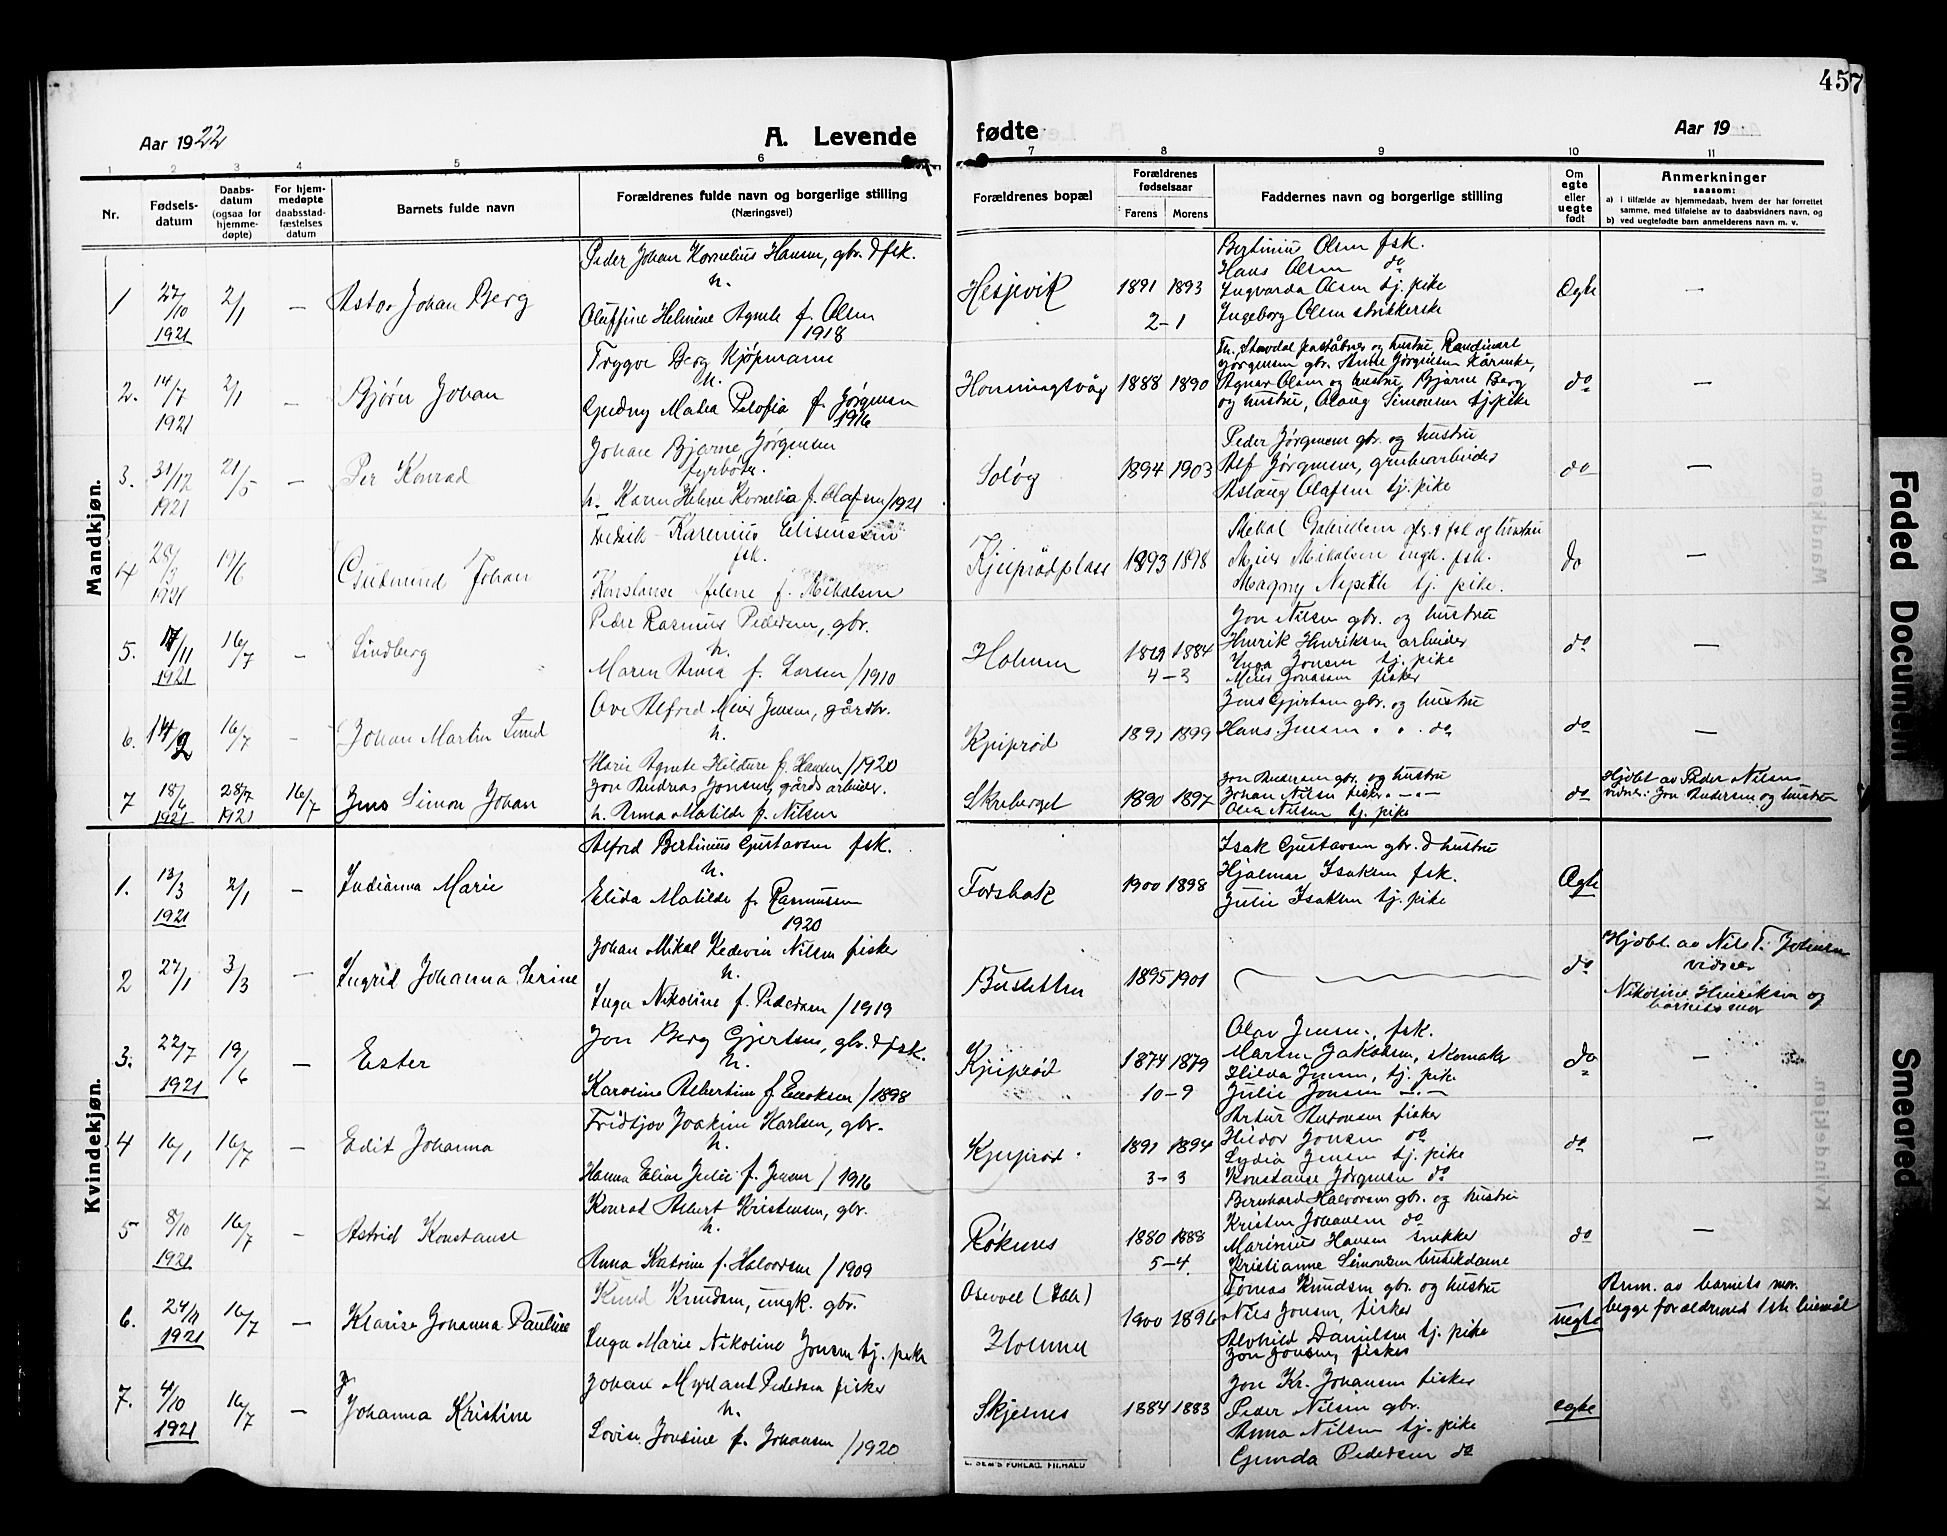 457
Aar 1922
A. Levende fødte
Aar 19
1 2 3 4 5 6 7 8 9 10 11
Nr.
Fødselsdatum
Daabsdatum (ogsaa for hjemmedøpte)
For hjemmedøpte daabsstadfæstelses datum
Barnets fulde navn
Forældrenes fulde navn og borgerlige stilling
(Næringsvei)
Forældrenes bopæl
Forældrenes fødselsaar
Farens Morens
Faddernes navn og borgerlige stilling
Om egte eller uegte født
Anmerkninger
saasom:
a) i tilfælde av hjemmedaab, hvem der har forrettet
samme, med tilføielse av to daabsvidners navn, og
b) ved uegtefødte børn anmelderens navn m. v.
Mandkjøn.
1 27/10 1921 2/1 — Astor Johan Berg
Peder Johan Kornelius Hansen, gbr. & fsk.
h.
Oluffine Helmine Agnete f. Olsen
1918
Hesjevik 1891 1893
2-1
Bertinius Olsen fsk.
Hans Olsen do
Ingvarda Olsen tj. pike
Ingeborg Olsen strikkerske
Ægte —
2. 14/7 1921 2/1 — Bjørn Johan
Trygve Berg Kjøpmann
h.
Gudny Matea Petofia f. Jørgensen
1916
Honningsvåg 1888 1890
og hustru
Jørgensen gbr.
Agnar Olsen og hustru, Bjarne Berg
og hustru, Aslaug Simonsen tj. pike
do —
3. 31/12 1921 21/5 — Per Konrad
Johan Bjarne Jørgensen
fyrbøter.
h. Karen Helene Kornelia f. Olafsen /1921
Soløg 1894 1903
Peder Jørgensen gbr. og hustru
Alf Jørgensen, grubearbeider
Aslaug Olafsen tj. pike
do —
4 28/9 1921 19/6 — Gudmund Johan
Fredrik Karenius Elisenssen
fsk.
Konstanse Helene f. Mikalsen
Kjeiprødplass 1893 1898
Mikal Gabrielsen gbr. & fsk og hustru
Meier Mikalsen ungk. fsk.
Magny tj. pike.
do —
5. 17/11 1921 16/7 — Lindberg
Peder Rasmus Pedersen, gbr.
h.
Maren Anna f. Larsen /1910
Holmen 1884
Jon Nilsen gbr. og hustru
Henrik Henriksen arbeider
Inga Jonsen tj. pike
Meier Jonassen fisker
do —
6. 14/2 16/7 — Johan Martin Lund
Ove Alfred Meier Jensen, gårdbr.
h.
Marie Agnete Hildure f. Hansen /1920
Kjeiprød 1891 1899
Jens Gjertsen gbr. og hustru
Hans Jensen do
do —
7 18/6 1921 28/7 1921 16/7 Jens Simon Johan
Jon Andreas Jonsen, gårdsarbeider.
h. Anna Matilde f. Nilsen
Skreberget 1890 1897
Jon Andersen gbr. og hustru
Johan Nilsen fisker
Olea Nilsen tj. pike
do
Hjdbt av Peder Nilsen
vidner: Jon Andersen og hustru
Kvindekjøn.
1. 13/3 1921 2/1 — Indianna Marie
Alfred Bertinius Gustavsen fsk.
h.
Elida Matilde f. Rasmussen
1920
Forsbak 1900 1898
Isak Gustavsen gbr. & hustru
Hjalmar Isaksen fsk.
Julie Isaksen tj. pike
Ægte
2 27/1 3/3 — Ingrid Johanna Serine
Johan Mikal Kedevin Nilsen fisker
h.
Inga Nikoline f. Pedersen /1919
Busletten 1895 1901
do
Hjdbt av Nils T. Johnsen
vidner
Nikoline Henriksen og
barnets mor
3. 22/7 1921 19/6 — Ester
Jon Berg Gjertsen, gbr. & fsk.
h.
Karoline Albertine f. Enoksen /1898
Kjeiprød 1874 1879
10-9
Olav Jensen, fsk.
Martin Jakobsen, skomaker
Hilda Jensen, tj. pike
Julie Jonsen —
do —
4 16/1 16/7 — Edit Johanna
Fridtjov Joakim Karlsen, gbr.
h.
Hanna Elise Julie f. Jensen / 1916
Kjeiprød. 1891 1894
3-3
Artur Antonsen fisker
Hildor Jonsen do
Lydia Jensen tj. pike
Konstanse Jørgensen do
do —
5 8/10 1921 16/7 — Astrid Konstanse
Konrad Albert Kristensen, gbr.
h.
Anna Katrine f. Halvorsen / 1909
Røknes 1880 1888
5-4.
Bernhard Halvorsen gbr. og hustru
Kristen Johansen do
Marinius Hansen snekker
Kristianne Simonsen
do —
6. 24/11 1921 16/7 — Klarise Johanna Pauline
Knud Knudsen, ungk. gbr.
Inga Marie Nikoline Jonsen tj. pike
Holmen 1900 1896
Tomas Knudsen gbr. og hustru
Nils Jonsen, fisker
Alvhild Danielsen tj. pike
Jon Jonsen, fisker
uegte
Anm. av barnets mor.
begge forældrenes 1ste leiermål
7. 4/10 1921 16/7 — Johanna Kristine
Johan Myrland Pedersen fisker
h.
Lovise Jonsine f. Johansen /1920
Skjelnes 1884 1883
Jon Kr. Johansen fisker
Peder Nilsen gbr.
Anna Nilsen tj. pike
Gunda Pedersen do
egte
Faded Document
Smeared